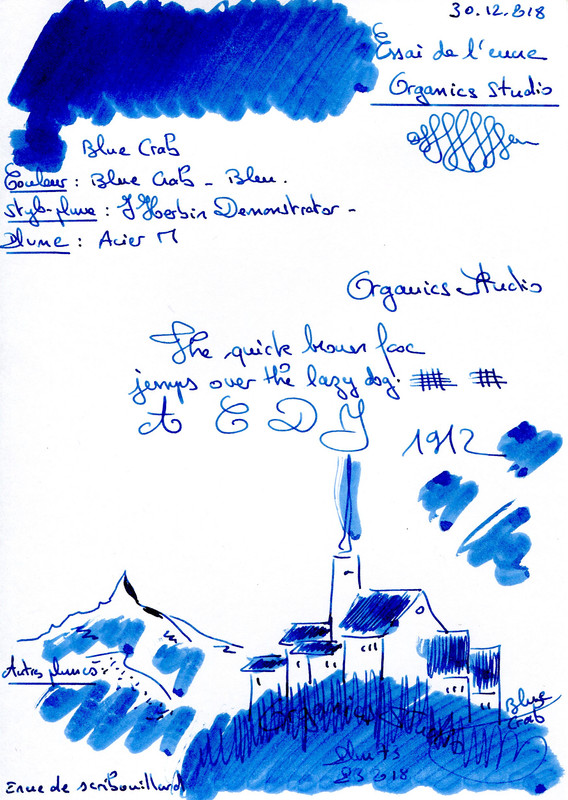 30.12.2018
Essai de l'encre
Organics Studio
Blue Crab
Couleur : Blue Crab - Bleu.
Stylo-plume : J Herbin Demonstrator -
Plume : Acier M
Organics Studio
The quick brown fox
jumps over the lazy dog.
A C D J
1912
Autres plumes :
Organics Studio
Blue
Crab
2018
Encre de scribouillard